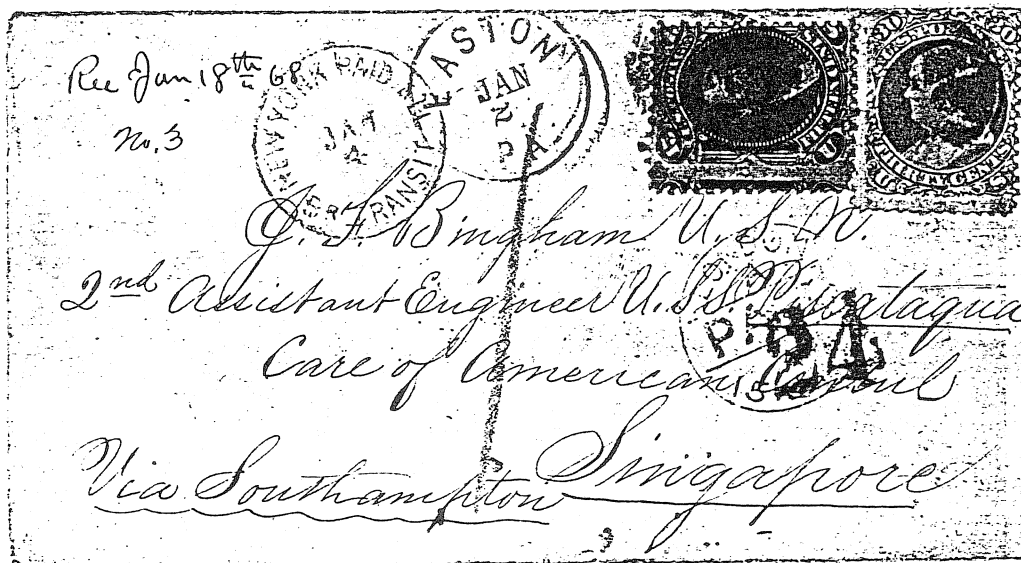 Rec Jan 18th 68
No. 3
NEW YORK PAID
JAN
4
TRANSIT
EASTON
JAN
2
PA
J. F. Bingham U. S. N.
2nd Assistant Engineer U.S.S. Piscataqua
Care of American Consul
24
Via Southampton
Singapore